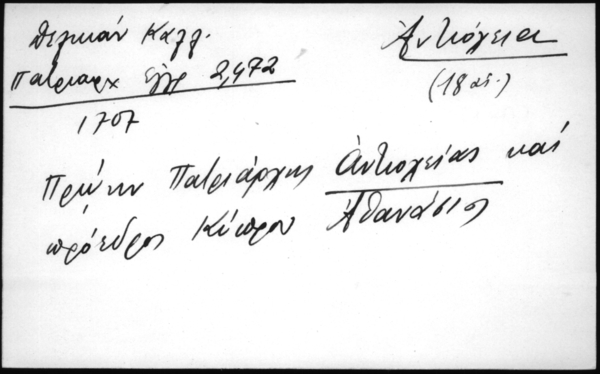 Δελικάν Καλλ.
Πατριαρχ Εγγρ 2,472
1707
Ἀντιόχεια
(18 αἰ.)
Πρώην Πατριάρχης Ἀντιοχείας καί
πρόεδρος Κύπρου Ἀθανάσιος